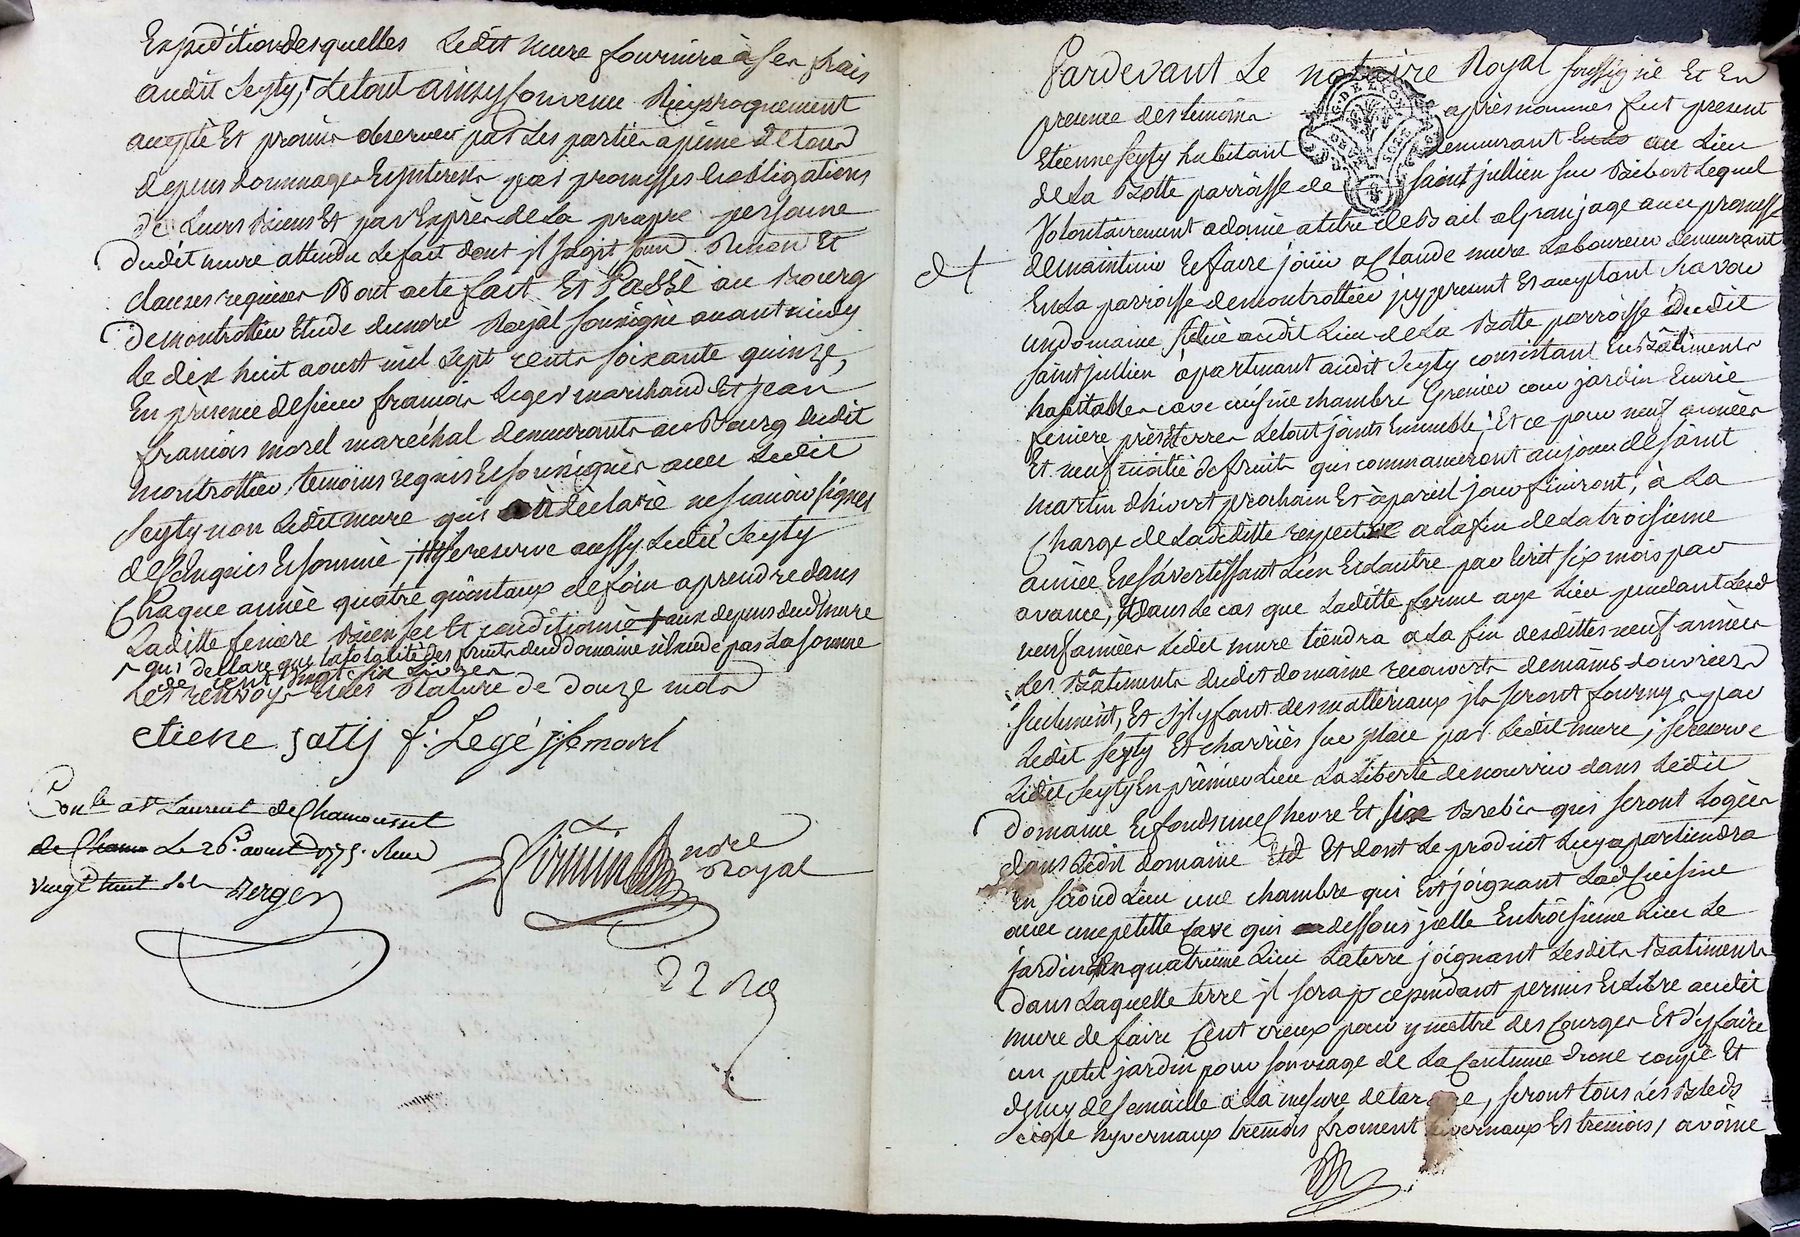 Expedition desquelles Ledit mure fournira à ses frais
audit Seyty, Letout ainsy Convenu Reciproquement
accepté Et promis observer par Les parties a peine de tous
depens dommages Et interests par promesses Et obligations
de Leurs Biens Et par Exprès de La propre personne
dudit mure attendu Le fait dont jl sagit sous Renon Et
clauses requises Dont acte fait Et Passé au Bourg
de montrottier Etude dunore Royal soussigné avant midy
Le dix huit aoust mil sept cents soixante quinze,
En présence de sieur francois Leger marchand Et jean
francois morel maréchal demeurants au Bourg dudit
montrottier temoins requis Et soussignés avec Ledit
Seyty non Ledit mure qui a déclaré ne scavoir signer
de Ce Enquis Et sommé se reserve aussy Ledit Seyty
Chaque année quatre quintaux de foin a prendre dans
Laditte feniere Bien sec Et conditionné aux depens dud mure
qui declare que la totalité des fruits dud domaine n'excede pas La somme
de cent vingt six Livres
Led renvoy Mes Rature de douze mots
etiene satij f. Legé jf morel
Con.le a St Laurent de Chamousset
de Cham Le 26e aoust 1775. Reçu
vingt huit sols Berger
nore
Royal
22 Rd
Pardevant Le notaire Royal soussigné Et En
presence des temoins après nommés fut present
Etienne Seyty habitant demeurant au Lieu
de La Botte parroisse de saint jullien sur Bibost Lequel
Volontairement a donné a titre de Bail a Granjage avec promesse
de maintenir Et faire jouir a Claude mure Laboureur demeurant
En La parroisse de montrottier jcy present Et acceptant scavoir
un domaine situé audit Lieu de La Botte parroisse dudit
saint jullien apartenant audit Seyty consistant En Bâtiments
habitables cave cuisine chambre Grenier cour jardin Ecurie
feniere près Et terres Letout joints Ensemble, Et ce pour neuf années
Et neuf moitié de fruits qui commenceront au jour de saint
martin d'hivert prochain Et à pareil jour finiront, à La
Charge de La déditte respective a La fin de La troisieme
année En s'avertissant L'un Et L'autre par Ecrit six mois par
avance, Et dans Le cas que Laditte ferme aye Lieu pendant Lesd
neuf années Ledit mure tiendra a La fin desdittes neuf années
Les Bâtiments dudit domaine recouverts de mains d'ouvriers
seulement, Et s'il y faut des matteriaux jls seront fournys par
Ledit Seyty Et charriés sur place par Ledit mure, se reserve
Ledit Seyty En prémier Lieu La Liberté de nourrir dans Ledit
Domaine Et fonds une Chevre Et six Brebis qui seront Logées
dans Ledit domaine Et dont Le produit Luy apartiendra
En second Lieu une chambre qui Est joignant Lad Cuisine
avec une petitte Cave qui dessous jcelle En troisieme Lieu Le
jardin En quatrieme Lieu La terre joignant Lesdits Batiments
dans Laquelle terre jl sera cependant permis Et Libre audit
mure de faire Cent creux pour y mettre des Courges Et d'y faire
un petit jardin pour son usage de La Contenue d'une coupe Et
demy de semaille a La mesure de tarare, seront tous Les Bleds
seigle hyvernaux tremois froment hyvernaux Et tremois, avoine